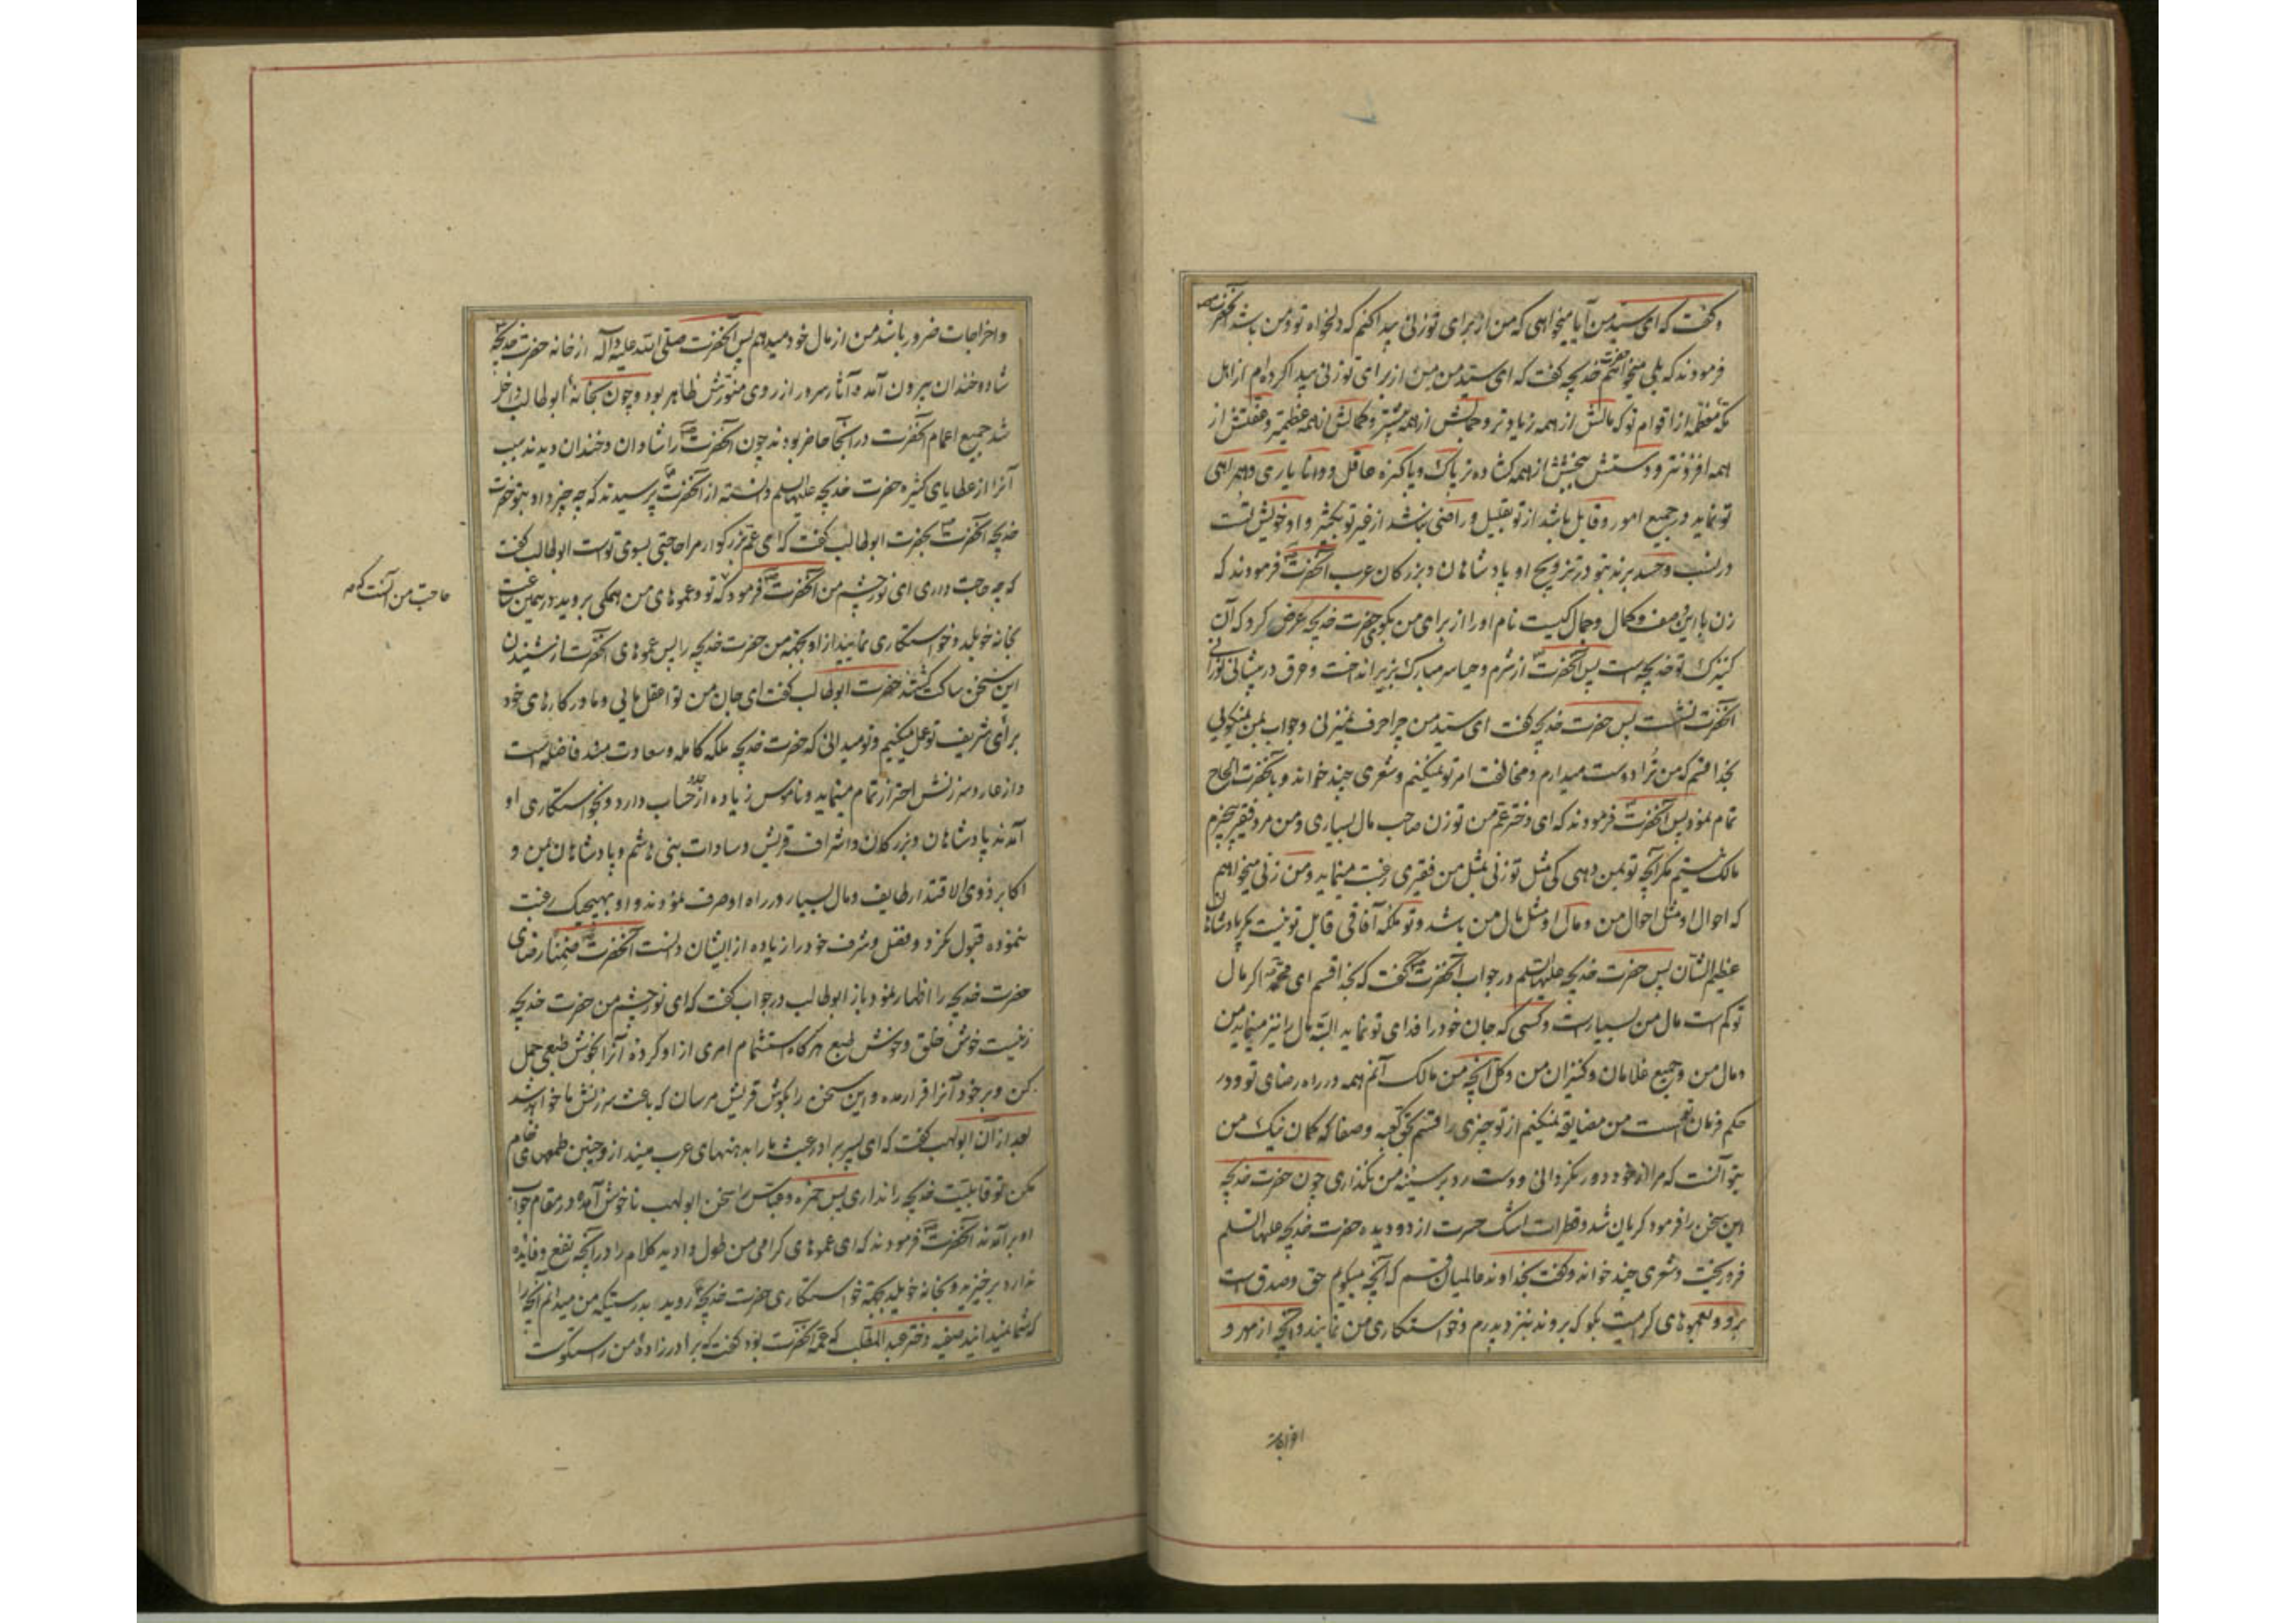 و گفت که ای سید من آیا میخواهی که من از برای تو زنی پیدا کنم که دلخواه تو و من باشد آنحضرت ص
فرمودند که بلی میخواهم حضرت خدیجه گفت که ای سید من من از برای تو زنی پیدا کرده‌ام از اهل
مکه معظمه از اقوام تو که مالش از همه زیادتر و جمالش از همه بیشتر و کمالش از همه عظیمتر و عفتش از
همه افزونتر و دستش ببخشش از همه کشاده‌تر پاک و پاکیزه عاقل و دانا یاری و همراهی
تو نماید در جمیع امور و قابل باشد از تو بقلیل و راضی نباشد از غیر تو بکثیر و او خویش تست
در نسب و حسد برند بتو در تزویج او پادشاهان و بزرکان عرب آنحضرت فرمودند که
زن با این وصف و کمال و جمال کیست نام او را از برای من بکوی حضرت خدیجه عرض کرد که آن
کنیزک تو خدیجه است پس آنحضرت از شرم و حیا سر مبارک بزیر انداخت و عرق در پیشانی نورانی
آنحضرت نشست پس حضرت خدیجه گفت ای سید من چرا حرف نمیزنی و جواب بمن نمیکویی
بخدا قسم که من ترا دوست میدارم و مخالفت امر تو نمیکنم و شعری چند خواند و بآنحضرت الحاح
تمام نمود پس آنحضرت فرمودند که ای دختر عم من تو زن صاحب مال بسیاری و من مرد فقیر بیچیزم
مالک نیستم مکر آنچه تو بمن دهی کی مثل تو زنی بمثل من فقیری رغبت مینماید و من زنی میخواهم
که احوال او مثل احوال من و مال او مثل مال من باشد و تو ملکه آفاقی قابل تو نیست مکر پادشاهان
عظیم الشان پس حضرت خدیجه علیها السلم در جواب آنحضرت گفت که بخدا قسم ای محمد اکر مال
تو کم است مال من بسیار است و کسی که جان خود را فدای تو نماید البته مال را نیز مینماید من
و مال من و جمیع غلامان و کنیزان من و کل آنچه من مالک آنم همه در راه رضای تو و در
حکم فرمان تو است من مضایقه نمیکنم از تو چیزی را قسم بحق کعبه و صفا که کمان نیک من
بتو آنست که مرا از خود دور نکردانی و دست رد بر سینه من نگذاری چون حضرت خدیجه
این سخن را فرمود کریان شد و قطرات اشک حسرت از دو دیده حضرت خدیجه علیها السلم
فرو ریخت و شعری چند خواند و گفت بخداوند عالمیان قسم که آنچه میکویم حق و صدق است
برو و بعموهای کرامیت بکو که بروند بنزد پدرم و خواستکاری من نمایند و آنچه از مهر و
اخراجات
و اخراجات ضرور باشد من از مال خود میدهم پس آنحضرت صلی الله علیه و آله از خانه حضرت خدیجه
شاد و خندان بیرون آمد و آثار سرور از روی منورش ظاهر بود و چون بخانه ابوطالب داخل
شد جمیع اعمام آنحضرت در آنجا حاضر بودند چون آنحضرت را شادان و خندان دیدند سبب
آنرا از عطایای کثیره حضرت خدیجه علیها السلم دانسته از آنحضرت پرسیدند که چه چیز داد بتو حضرت
خدیجه آنحضرت بحضرت ابوطالب گفت که ای عم بزرکوار مرا حاجتی بسوی تو است ابوطالب گفت
که چه حاجت داری ای نور چشم من آنحضرت فرمود که تو و عموهای من همکی بروید در همین ساعت
حاجت من آنست که
بخانه خویلد و خواستکاری نمایید از او بجهة من حضرت خدیجه را پس عموهای آنحضرت از شنیدن
این سخن ساکت کشتند حضرت ابوطالب گفت ای جان من تو اعقل مایی و ما در کارهای خود
برای شریف تو عمل میکنیم و تو میدانی که حضرت خدیجه ملکه کامله و سعادت‌مند فاضله است
و از عار و سرزنش احتراز تمام مینماید و ناموس زیاده از حساب دارد و بخواستکاری او
آمدند پادشاهان و بزرکان و اشراف قریش و سادات بنی هاشم و پادشاهان یمن و
اکابر ذوی الاقتدار طایف و مال بسیار در راه او صرف نمودند و او بهیچیک رغبت
ننموده قبول نکرد و عقل و شرف خود را زیاده از ایشان دانست آنحضرت ضمنا رضای
حضرت خدیجه را اظهار نمود باز ابوطالب در جواب گفت که ای نور چشم من حضرت خدیجه
زنیست خوش خلق و خوش طبع هرکاه استشمام امری از او کرده آنرا بخوش طبعی حمل
کن و بر خود آنرا قرار مده و این سخن را بکوش قریش مرسان که باعث سرزنش ما خواهد شد
بعد از آن ابولهب گفت که ای پسر برادر عبث ما را بدهنهای عرب مینداز و چنین طمعهای خام
مکن تو قابلیت خدیجه را نداری پس حمزه و عباس را سخن ابولهب ناخوش آمد و در مقام جواب
او برآمدند آنحضرت فرمودند که ای عموهای کرامی من طول دادید کلام را در آنچه نفع و فایده
ندارد برخیزید و بخانه خویلد بجهة خواستکاری حضرت خدیجه روید بدرستیکه من میدانم آنچه را
که شما نمیدانید صفیه دختر عبد المطلب که عمه آنحضرت بود گفت که برادرزاده من راستکوست